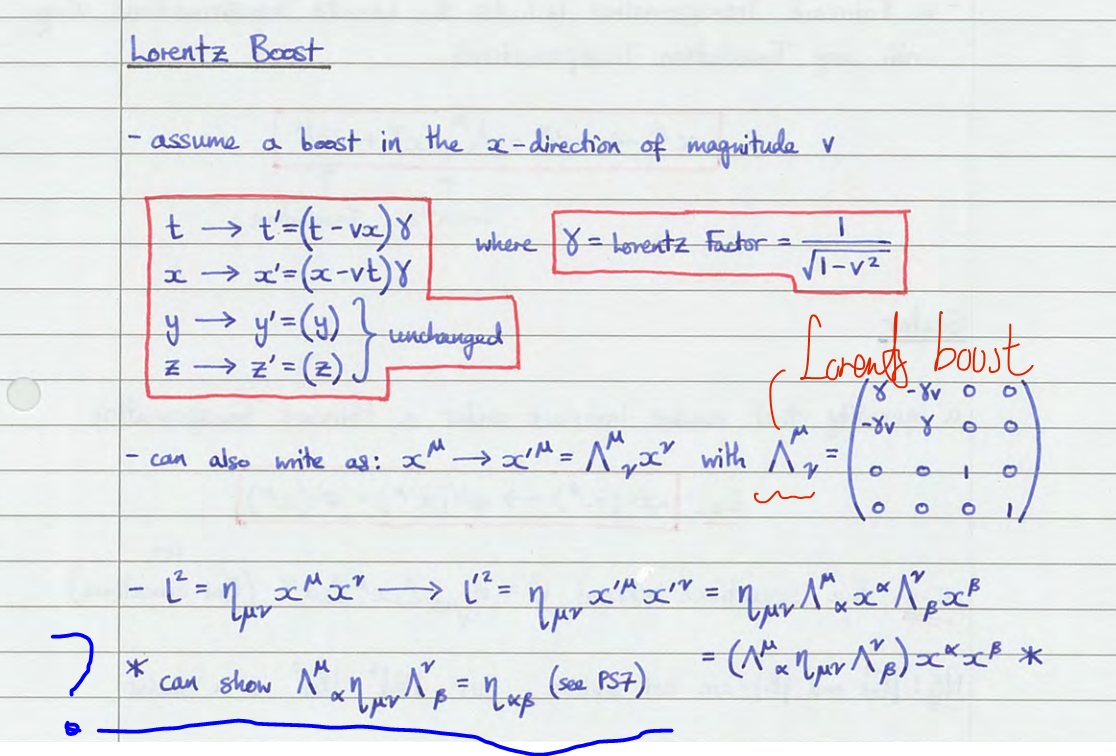 Lorentz Boost
- assume a boost in the x-direction of magnitude v
t → t'=(t-vx)γ
where γ = Lorentz Factor = 1/√(1-v²)
x → x'=(x-vt)γ
y → y'=(y)
z → z'=(z)
} unchanged
Lorentz boust
- can also write as: x^μ → x'^μ = Λ^μ_ν x^ν with Λ^μ_ν =
(γ -γv 0 0
-γv γ 0 0
0 0 1 0
0 0 0 1)
- l² = η_μν x^μ x^ν → l'² = η_μν x'^μ x'^ν = η_μν Λ^μ_α x^α Λ^ν_β x^β
= (Λ^μ_α η_μν Λ^ν_β) x^α x^β *
? * can show Λ^μ_α η_μν Λ^ν_β = η_αβ (see PS7)